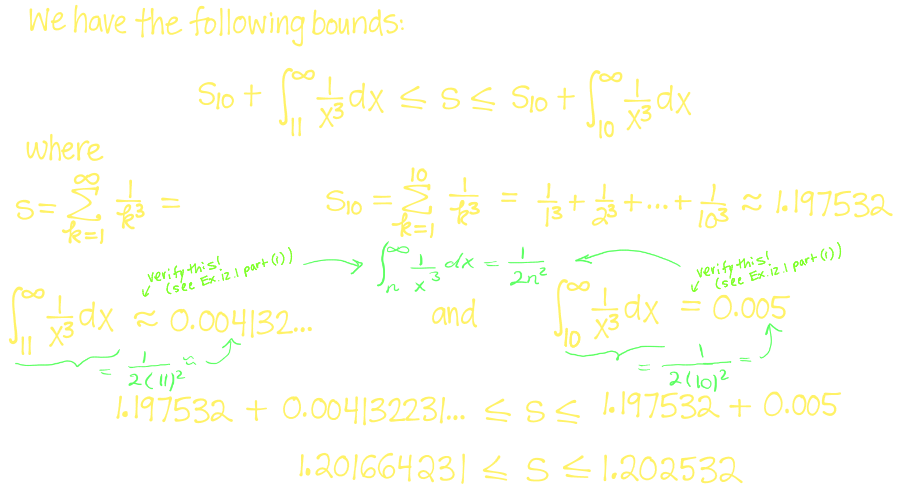 We have the following bounds:
S₁₀ + ∫₁₁^∞ 1/x³ dx ≤ S ≤ S₁₀ + ∫₁₀^∞ 1/x³ dx
where
S = ∑_{k=1}^∞ 1/k³ =
S₁₀ = ∑_{k=1}^{10} 1/k³ = 1/1³ + 1/2³ + ... + 1/10³ ≈ 1.197532
verify this! (see Ex.12.1 part(1))
∫ₙ^∞ 1/x³ dx = 1/2n²
verify this! (see Ex.12.1 part(1))
∫₁₁^∞ 1/x³ dx ≈ 0.004132... and ∫₁₀^∞ 1/x³ dx = 0.005
= 1/2(11)² ≈
= 1/2(10)² =
1.197532 + 0.004132231... ≤ S ≤ 1.197532 + 0.005
1.201664231 ≤ S ≤ 1.202532